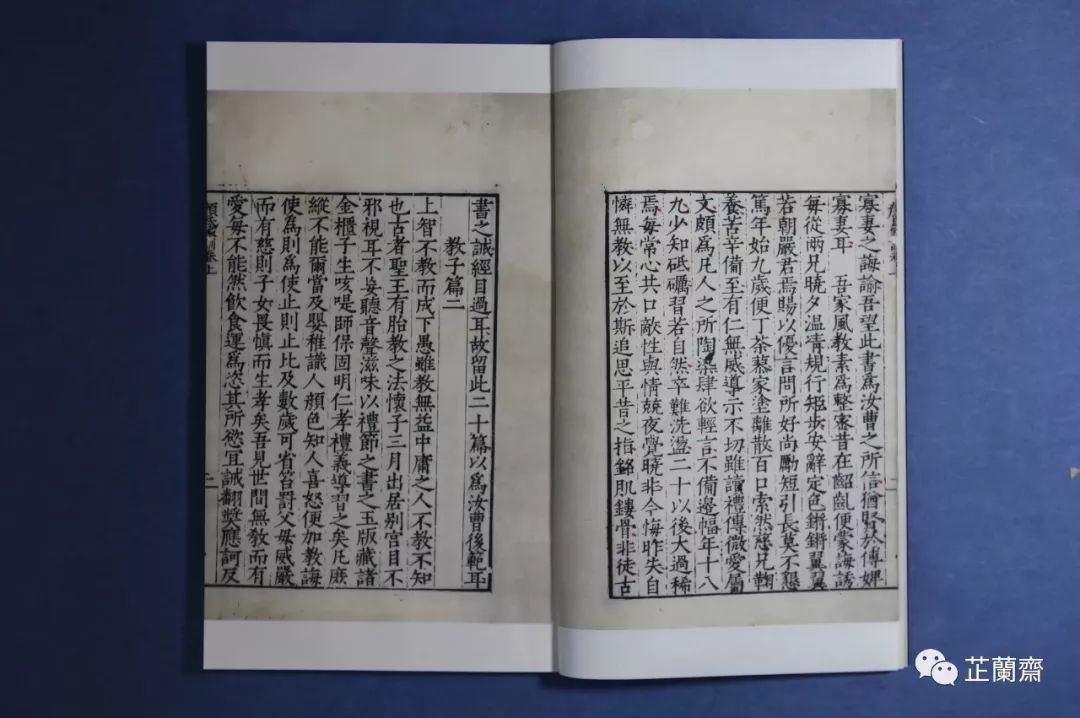 寡妻之誨諭吾望此書爲汝曹之所信猶賢於傅婢
寡妻耳　吾家風教素爲整密昔在齠齓便蒙誨誘
每從兩兄曉夕温凊規行矩步安辭定色鏘鏘翼翼
若朝嚴君焉賜以優言問所好尚勵短引長莫不懇
篤年始九歲便丁荼蓼家塗離散百口索然慈兄鞠
養苦辛備至有仁無威導示不切雖讀禮傳微愛屬
文頗爲凡人之所陶染肆欲輕言不備邊幅年十八
九少知砥礪習若自然卒難洗盪二十以後大過稀
焉每常心共口敵性與情競夜覺曉非今悔昨失自
憐無教以至於斯追思平昔之指銘肌鏤骨非徒古
書之誡經目過耳故留此二十篇以爲汝曹後範耳
教子篇二
上智不教而成下愚雖教無益中庸之人不教不知
也古者聖王有胎教之法懷子三月出居别宫目不
邪視耳不妄聽音聲滋味以禮節之書之玉版藏諸
金櫃子生咳㖷師保固明仁孝禮義導習之矣凡庶
縱不能爾當及嬰稚識人顔色知人喜怒便加教誨
使爲則爲使止則止比及數歲可省笞罰父母威嚴
而有慈則子女畏慎而生孝矣吾見世間無教而有
愛每不能然飲食運爲恣其所慾宜誡翻奬應訶反
芷蘭齋